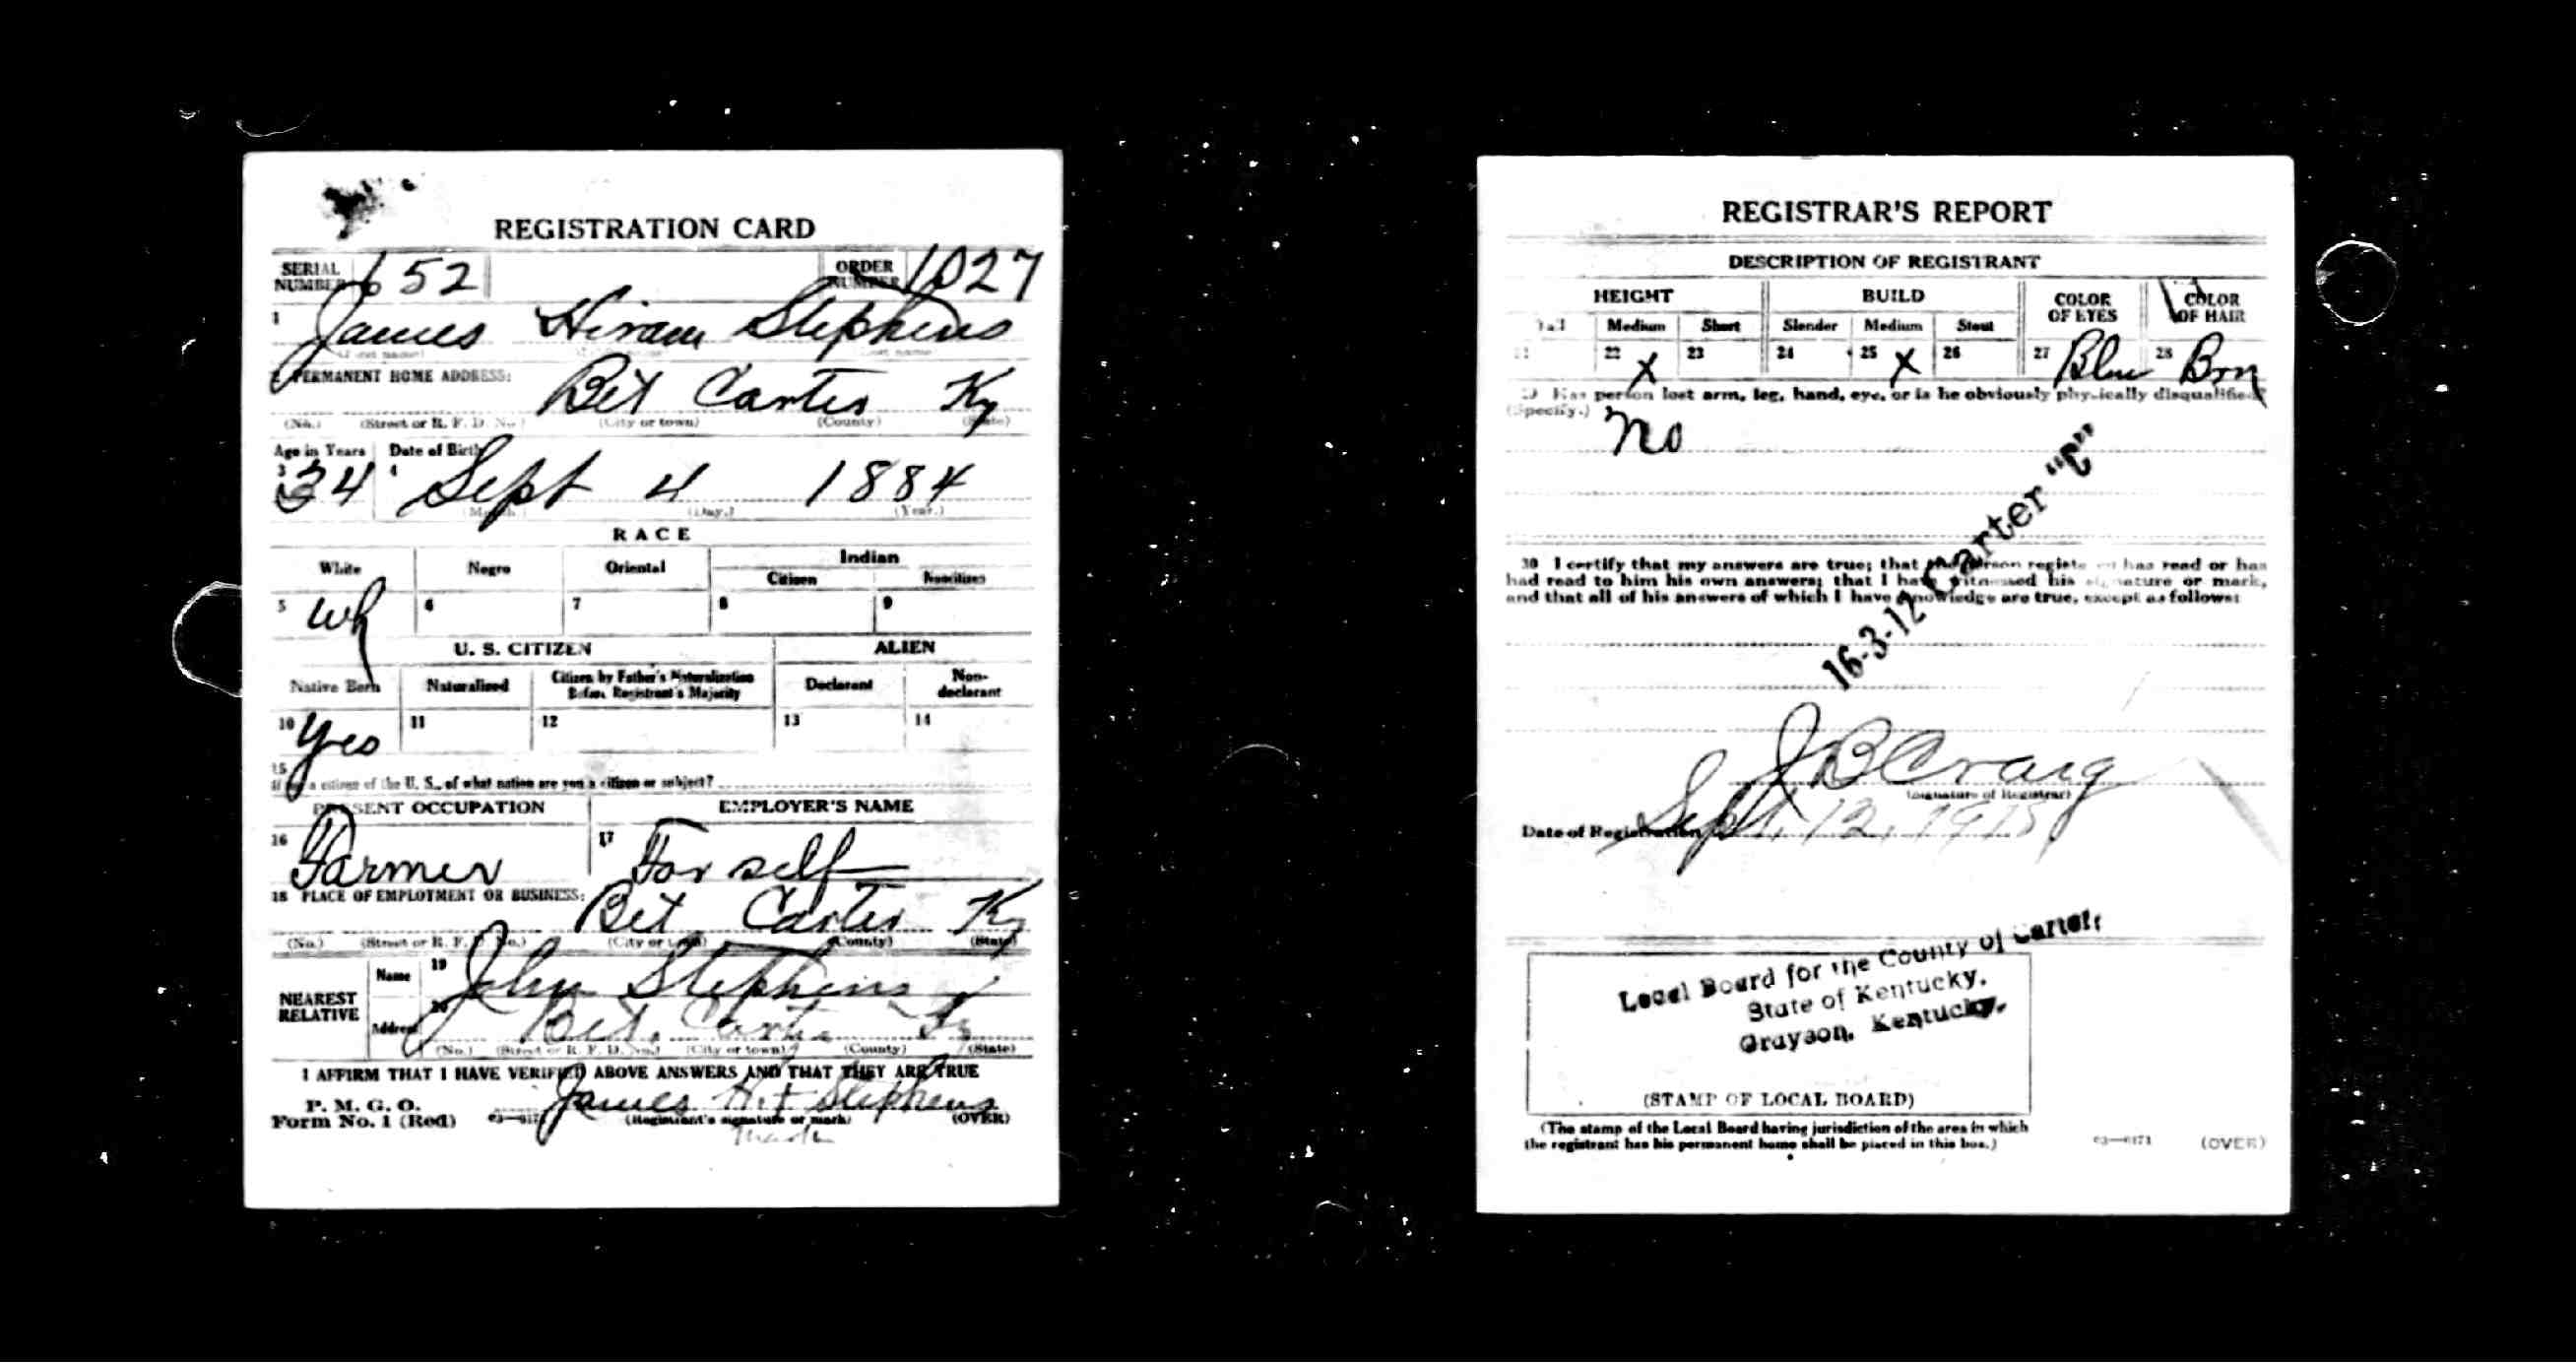 REGISTRATION CARD
SERIAL NUMBER 652 ORDER NUMBER 1027
1 James Hiram Stephens
2 PERMANENT HOME ADDRESS: Bet Carter Ky
(No.) (Street or R. F. D. No.) (City or town) (County) (State)
Age in Years Date of Birth
3 34 4 Sept 4 1884
(Month.) (Day.) (Year.)
RACE
White Negro Oriental Indian
Citizen Noncitizen
5 Wh 6 7 8 9
U. S. CITIZEN ALIEN
Native Born Naturalized Citizen by Father's Naturalization Before Registrant's Majority Declarant Non-declarant
10 Yes 11 12 13 14
15
If not a citizen of the U. S., of what nation are you a citizen or subject?
PRESENT OCCUPATION EMPLOYER'S NAME
16 Farmer 17 For self
18 PLACE OF EMPLOYMENT OR BUSINESS: Bet Carter Ky
(No.) (Street or R. F. D. No.) (City or town) (County) (State)
NEAREST RELATIVE Name 19 John Stephens
Address 20 Bet. Carter Ky
(No.) (Street or R. F. D. No.) (City or town) (County) (State)
I AFFIRM THAT I HAVE VERIFIED ABOVE ANSWERS AND THAT THEY ARE TRUE
P. M. G. O.
Form No. 1 (Red) James H. + Stephens
(Registrant's signature or mark) (OVER)
mark
REGISTRAR'S REPORT
DESCRIPTION OF REGISTRANT
HEIGHT BUILD COLOR OF EYES COLOR OF HAIR
Tall Medium Short Slender Medium Stout
21 22 X 23 24 25 X 26 27 Blue 28 Brn
29 Has person lost arm, leg, hand, eye, or is he obviously physically disqualified?
(Specify.) No
16-3-12 Carter "C"
30 I certify that my answers are true; that the person registered has read or has
had read to him his own answers; that I have witnessed his signature or mark,
and that all of his answers of which I have knowledge are true, except as follows:
J B Craig
(Signature of Registrar)
Date of Registration Sept. 12, 1918
Local Board for the County of Carter,
State of Kentucky.
Grayson, Kentucky.
(STAMP OF LOCAL BOARD)
(The stamp of the Local Board having jurisdiction of the area in which
the registrant has his permanent home shall be placed in this box.)
03—6171 (OVER)